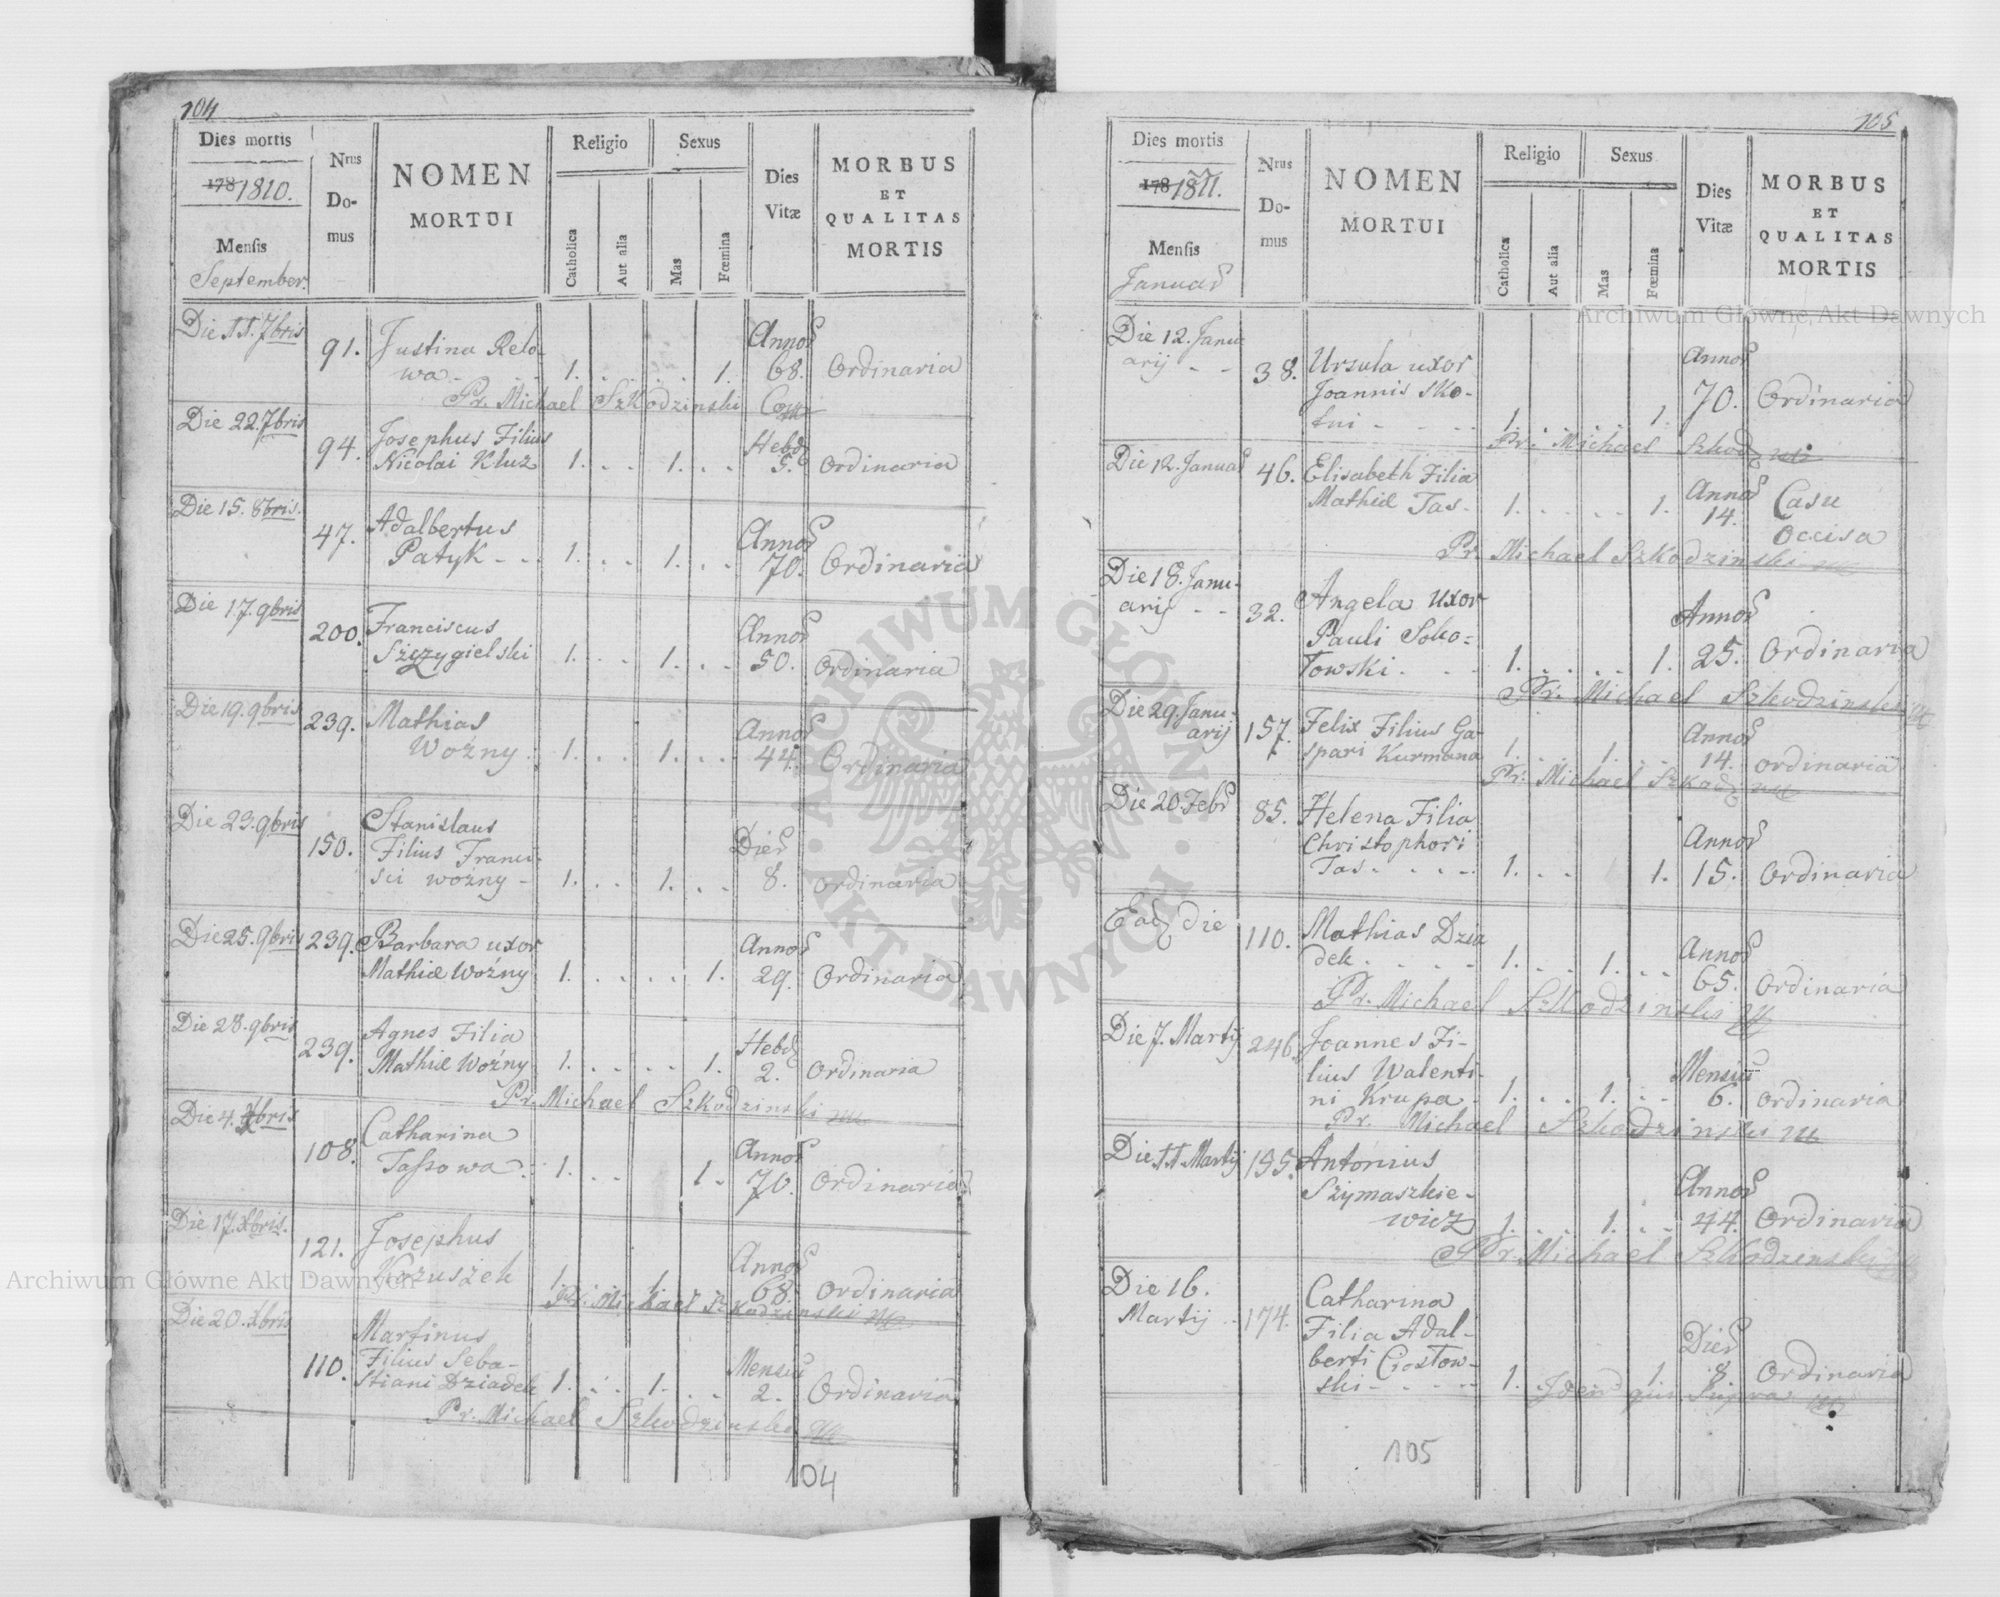 104
Dies mortis
1781810.
Mensis
September.
Nrus
Do-
mus
NOMEN
MORTUI
Religio
Catholica
Aut alia
Sexus
Mas
Fœmina
Dies
Vitæ
MORBUS
ET
QUALITAS
MORTIS
Die 11. 7bris
91.
Justina Relo-
wa - 1. . . . . 1.
Annor
68.
Ordinaria
Pr. Michael Szkodzinski
Die 22. 7bris
94.
Josephus Filius
Nicolai Kluz 1. . . 1. . .
Hebd
5.
Ordinaria
Die 15. 8bris.
47.
Adalbertus
Patyk - - . 1. . . 1. . .
Annor
70.
Ordinaria
Die 17. 9bris
200.
Franciscus
Szczygielski 1. . . 1. . .
Annor
50.
Ordinaria
Die 19. 9bris
239.
Mathias
Woźny . 1. . . 1. . .
Annor
44.
Ordinaria
Die 23. 9bris
150.
Stanislaus
Filius Franci-
sci woźny - 1. . . 1. . .
Dier
8.
Ordinaria
Die 25. 9bris
239.
Barbara uxor
Mathiæ Woźny 1. . . . . 1.
Annor
29.
Ordinaria
Die 28. 9bris
239.
Agnes Filia
Mathiæ Woźny 1. . . . . 1.
Hebd
2.
Ordinaria
Pr. Michael Szkodzinski
Die 4. Xbris
108.
Catharina
Tassowa . 1. . . 1 .
Annor
70.
Ordinaria
Die 17. Xbris.
121.
Josephus
Kozuszek 1. 1.
Annor
68.
Ordinaria
Pr. Michael Szkodzinski
Die 20. Xbris
110.
Martinus
Filius Seba-
stiani Dziadek 1. . . 1. . .
Mensiu
2.
Ordinaria
Pr. Michael Szkodzinski
104
105
Dies mortis
1781811.
Mensis
Januar
Nrus
Do-
mus
NOMEN
MORTUI
Religio
Catholica
Aut alia
Sexus
Mas
Fœmina
Dies
Vitæ
MORBUS
ET
QUALITAS
MORTIS
Die 12. Janu-
arij - -
38.
Ursula uxor
Joannis Sko-
tni - - - - 1. . . . . 1.
Annor
70.
Ordinaria
Pr. Michael Szkodz
Die 12. Januar
46.
Elisabeth Filia
Mathiæ Tas. 1. . . . . 1.
Annor
14.
Casu
occisa
Pr. Michael Szkodzinski
Die 18. Janu-
arij - -
32.
Angela uxor
Pauli Soko-
łowski . . . 1. . . . . 1.
Annor
25.
Ordinaria
Pr. Michael Szkodzinski
Die 29. Janu-
arij
157.
Felix Filius Ga-
spari Kurmana 1. . . 1. . .
Annor
14.
ordinaria
Pr. Michael Szkodz
Die 20. Febr
85.
Helena Filia
Christophori
Tas. . . . . 1. . . 1.
Annor
15.
Ordinaria
Ead die
110.
Mathias Dzia
dek . . . . 1. . . 1. . .
Annor
65.
Ordinaria
Pr. Michael Szkodzinski
Die 7. Martij
246.
Joannes Fi-
lius Walenti-
ni Krupa . 1. . . 1. . .
Mensiu
6.
Ordinaria
Pr. Michael Szkodzinski
Die 11. Martij
195.
Antonius
Szymaszkie-
wicz 1. . . 1. . .
Annor
44.
Ordinaria
Pr. Michael Szkodzinski
Die 16.
Martij
174.
Catharina
Filia Adal-
berti Ciosłow-
ski - - - - 1. 1.
Dier
8.
Ordinaria
Idem qui supra
105
Archiwum Główne Akt Dawnych
Archiwum Główne Akt Dawnych
ARCHIWUM GŁÓWNE · AKT DAWNYCH ·